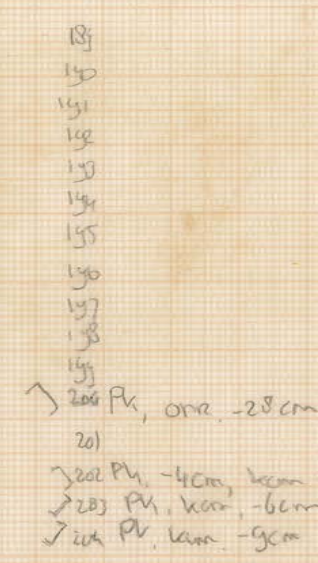 189
190
191
192
193
194
195
196
197
198
199
200 Pk, omr. -28cm
201
202 Pk, -4cm, kam
203 Pk, kam, -6cm
204 Pk, kam, -9cm